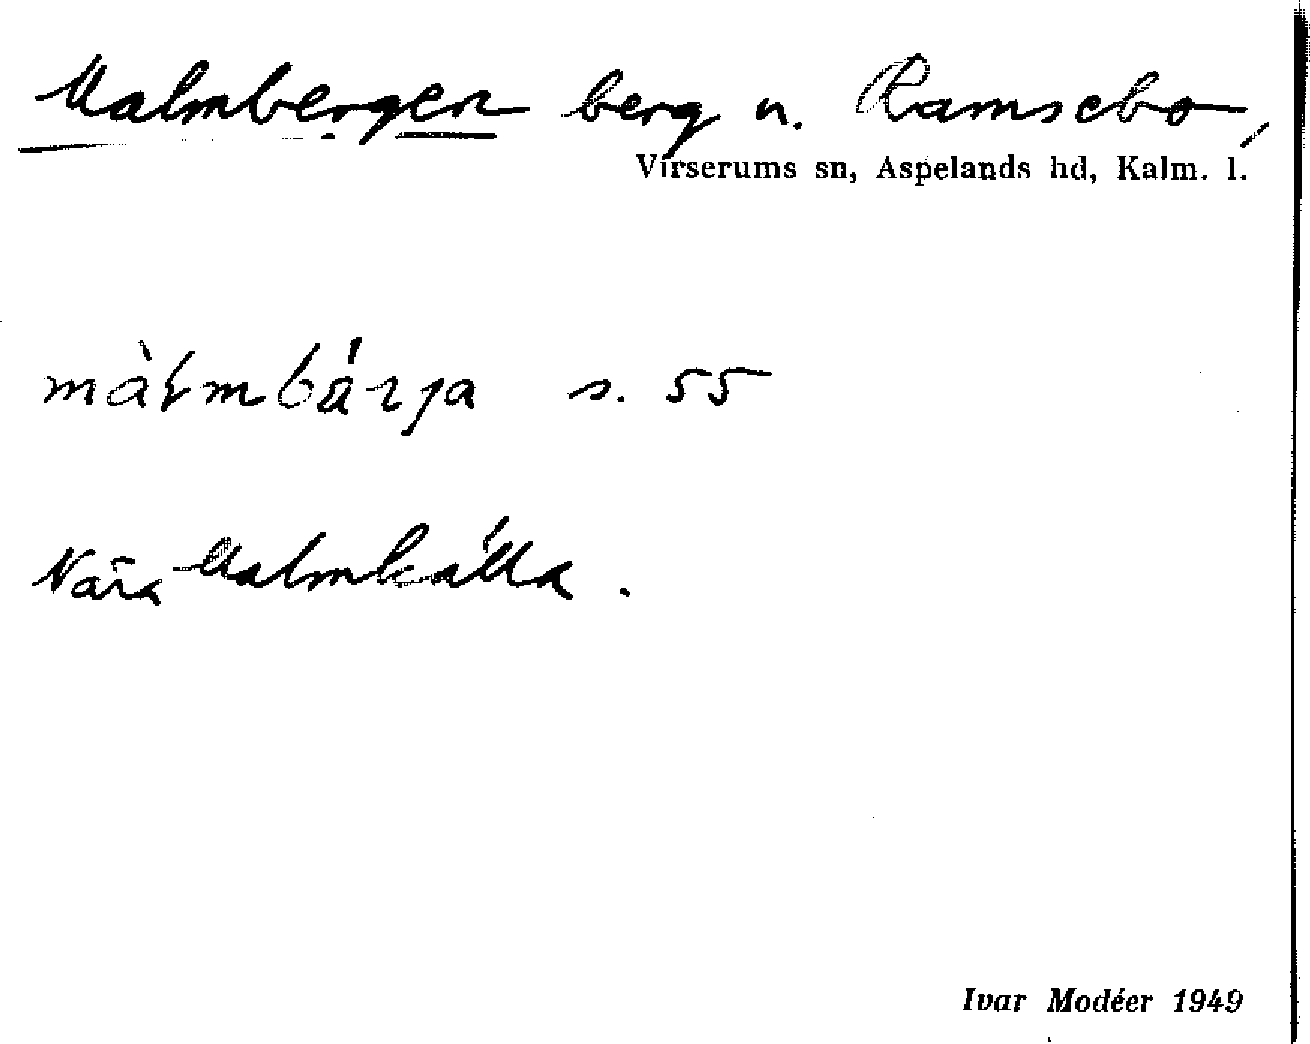 Malmbergen berg n. Ramsebo,
Virserums sn, Aspelands hd, Kalm. l.
màɫmbá̈rja s. 55
Nära Malmkälla.
Ivar Modéer 1949